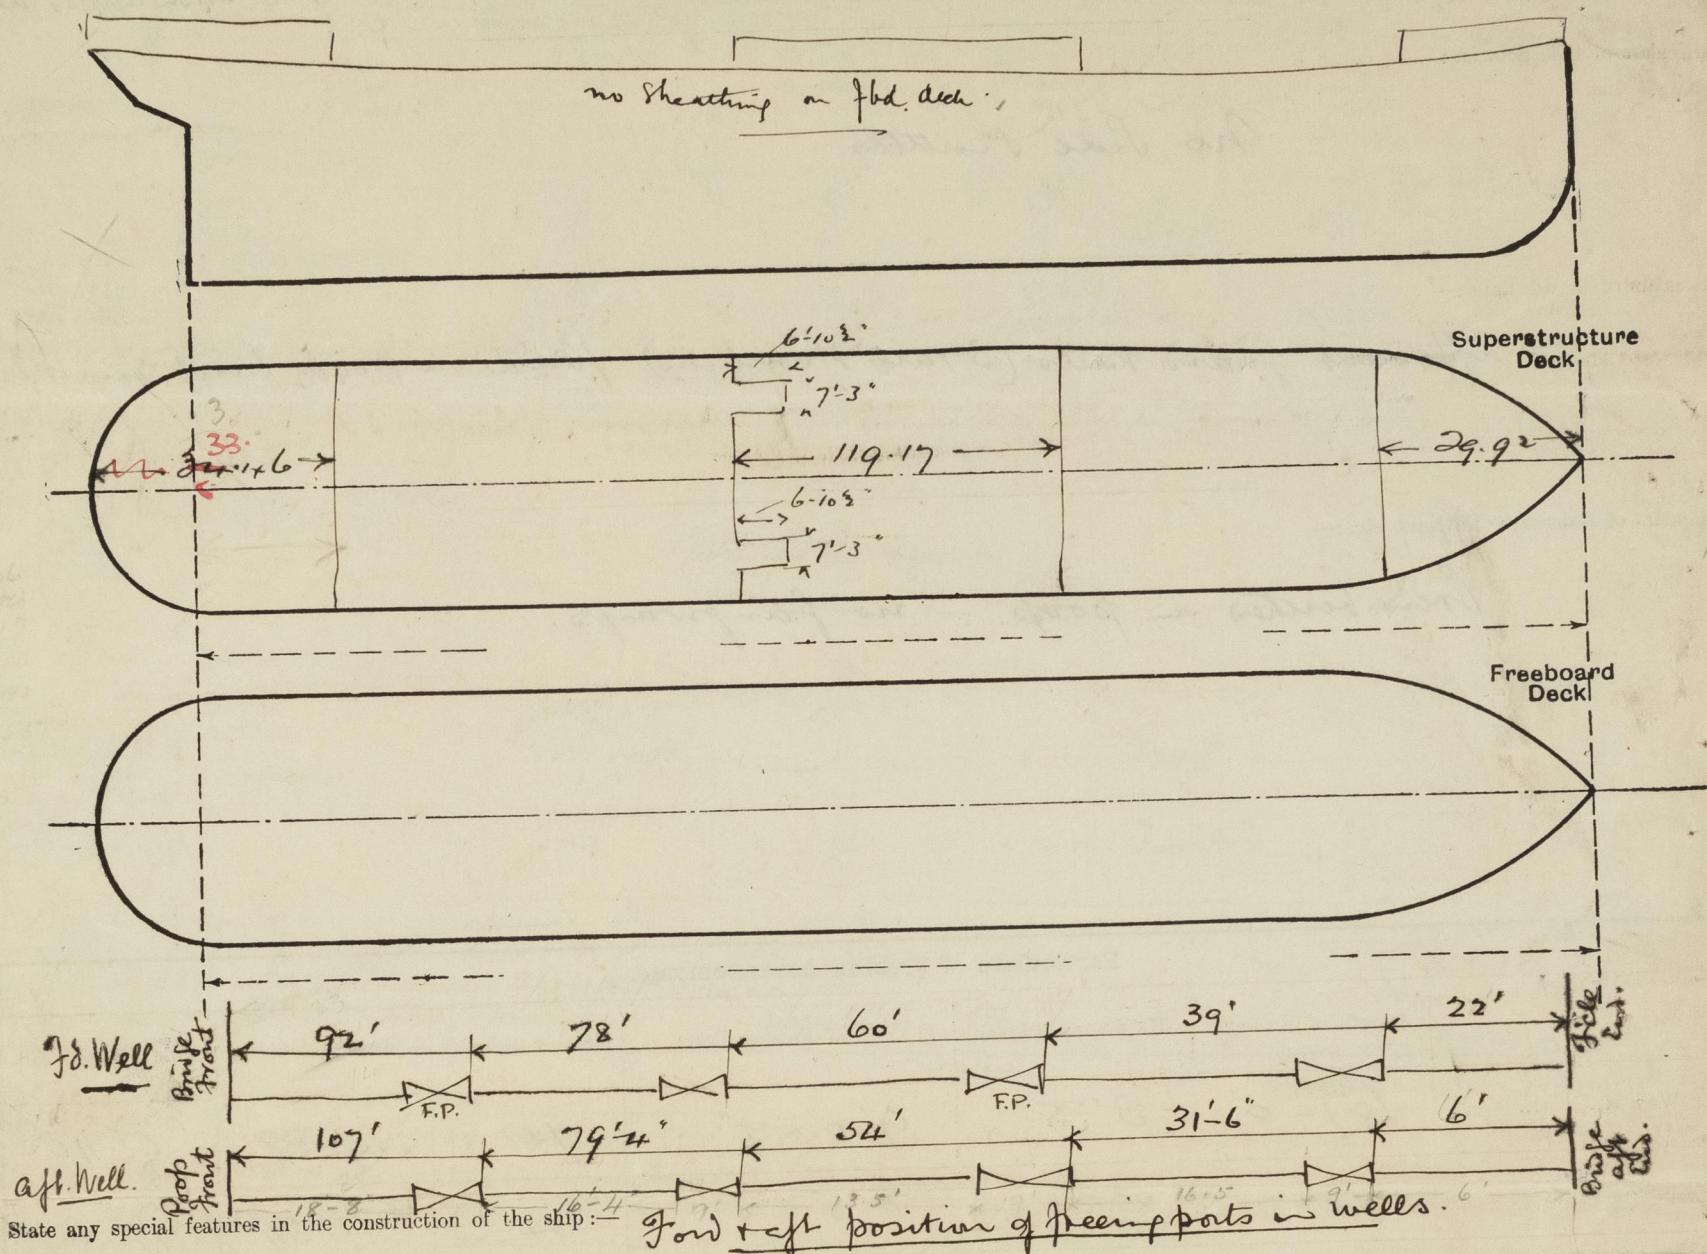 no Sheathing on fbd. deck.
Superstructure
Deck
6'-10½"
7'-3"
3.
33.
119.17
29.92
6-10½"
7'-3"
Freeboard
Deck
Fd. Well
Bridge
Front
92'
78'
60'
39'
22'
F'cle
End.
F.P.
F.P.
aft. Well.
Poop
Front
107'
79'-4"
54'
31'-6"
6'
Bridge
aft
End.
18'-8"
16'-4"
13.5'
16.5
6'
State any special features in the construction of the ship :—
Ford & aft position of freeing ports in wells.